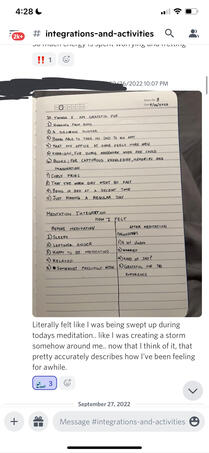 4:28
2k+
# integrations-and-activities
so much energy is spent worrying and fretting
!! 1
/26/2022 10:07 PM
10 things I am grateful for
1) Running from bugs
2) A delicious dinner
3) Being able to take my dad to an appt
4) That my office at home feels more open
5) Kabbalah, for being understood when one could
6) Books, for capturing knowledge, memories and
imagination
7) Curly fries
8) That the work day went by fast
9) Being in bed at a decent time
10) Just having a regular day
Meditation Integration
How I felt
Before Meditation
After Meditation
1) Sleepy
2) Leftover anger
3) Happy to be meditating
3) Worried
4) Relaxed
4) Kind of sad?
5) Somewhat present with
5) Grateful for the
experience
Literally felt like I was being swept up during
todays meditation.. like I was creating a storm
somehow around me.. now that I think of it, that
pretty accurately describes how I've been feeling
for awhile.
3
September 27, 2022
Message #integrations-and-activities